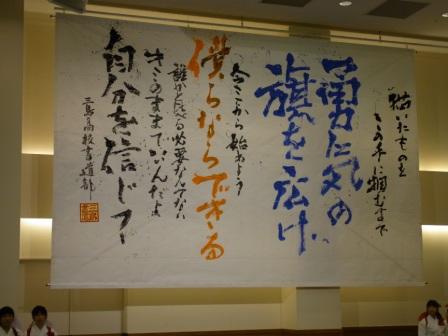 描いたものを
この手に掴むまで
勇気の
旗を広げ
今ここから始めよう
僕らならできる
誰かと比べる必要なんてない
きみのままでいいんだよ
自分を信じて
三島高校書道部